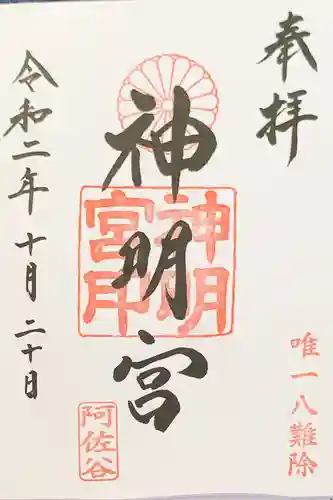 奉拝
唯一八難除
神明宮
神明宮印
阿佐谷
令和二年十月二十日